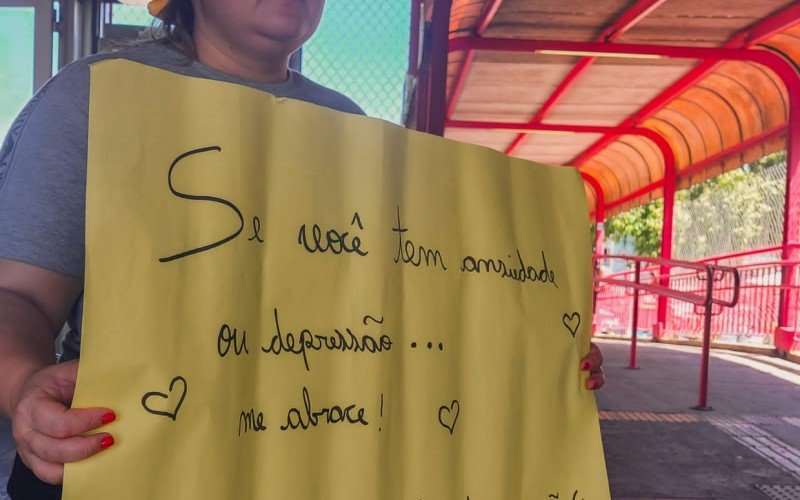 Se você tem ansiedade
ou depressão ...
me abrace!